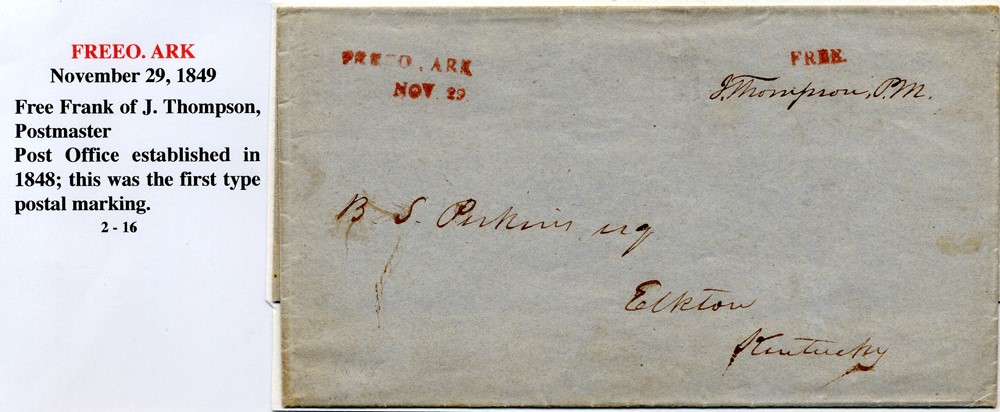 FREEO. ARK
November 29, 1849
Free Frank of J. Thompson,
Postmaster
Post Office established in
1848; this was the first type
postal marking.
2 - 16
FREEO. ARK
NOV. 29
FREE.
J. Thompson, P.M.
B. S. Perkins esq
Elkton
Kentucky